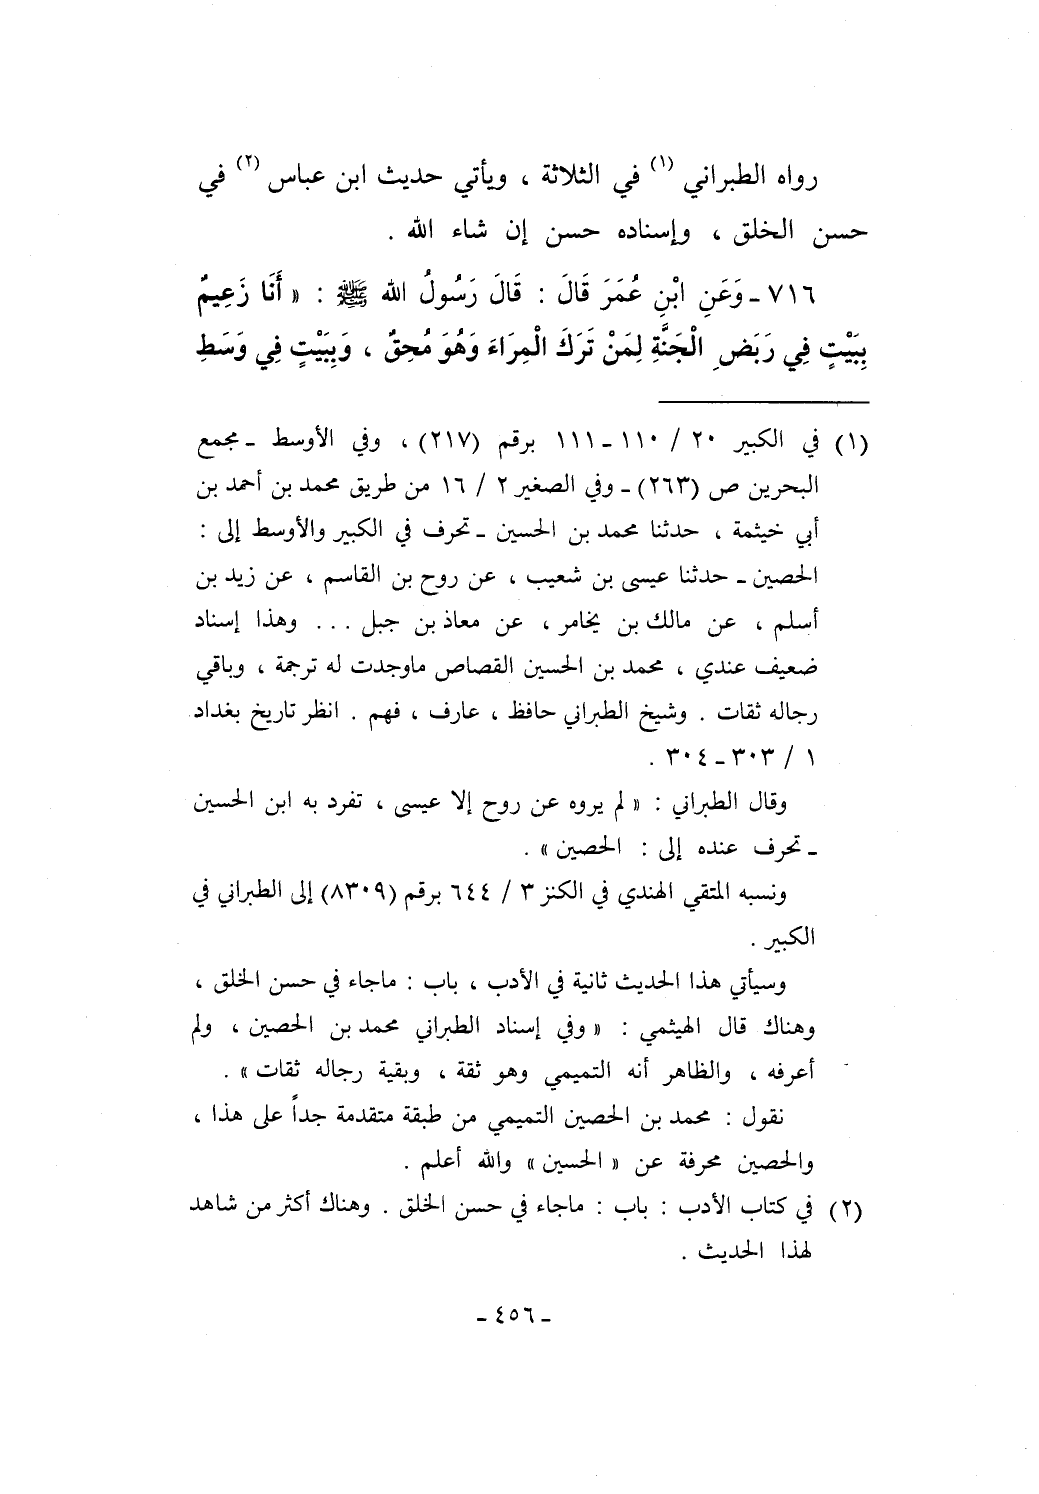 رواه الطبراني (١) في الثلاثة ، ويأتي حديث ابن عباس (٢) في
حسن الخلق ، وإسناده حسن إن شاء الله .
٧١٦ ـ وَعَنِ ابْنِ عُمَرَ قَالَ : قَالَ رَسُولُ الله ﷺ : « أَنَا زَعِيمٌ
بِبَيْتٍ فِي رَبَضِ الْجَنَّةِ لِمَنْ تَرَكَ الْمِرَاءَ وَهُوَ مُحِقٌّ ، وَبِبَيْتٍ فِي وَسَطِ
(١) في الكبير ٢٠ / ١١٠ ـ ١١١ برقم (٢١٧) ، وفي الأوسط ـ مجمع
البحرين ص (٢٦٣) ـ وفي الصغير ٢ / ١٦ من طريق محمد بن أحمد بن
أبي خيثمة ، حدثنا محمد بن الحسين ـ تحرف في الكبير والأوسط إلى :
الحصين ـ حدثنا عيسى بن شعيب ، عن روح بن القاسم ، عن زيد بن
أسلم ، عن مالك بن يخامر ، عن معاذ بن جبل ... وهذا إسناد
ضعيف عندي ، محمد بن الحسين القصاص ماوجدت له ترجمة ، وباقي
رجاله ثقات . وشيخ الطبراني حافظ ، عارف ، فهم . انظر تاريخ بغداد
١ / ٣٠٣ ـ ٣٠٤ .
وقال الطبراني : « لم يروه عن روح إلا عيسى ، تفرد به ابن الحسين
ـ تحرف عنده إلى : الحصين » .
ونسبه المتقي الهندي في الكنز ٣ / ٦٤٤ برقم (٨٣٠٩) إلى الطبراني في
الكبير .
وسيأتي هذا الحديث ثانية في الأدب ، باب : ماجاء في حسن الخلق ،
وهناك قال الهيثمي : « وفي إسناد الطبراني محمد بن الحصين ، ولم
أعرفه ، والظاهر أنه التميمي وهو ثقة ، وبقية رجاله ثقات » .
نقول : محمد بن الحصين التميمي من طبقة متقدمة جداً على هذا ،
والحصين محرفة عن « الحسين » والله أعلم .
(٢) في كتاب الأدب : باب : ماجاء في حسن الخلق . وهناك أكثر من شاهد
لهذا الحديث .
ـ ٤٥٦ ـ